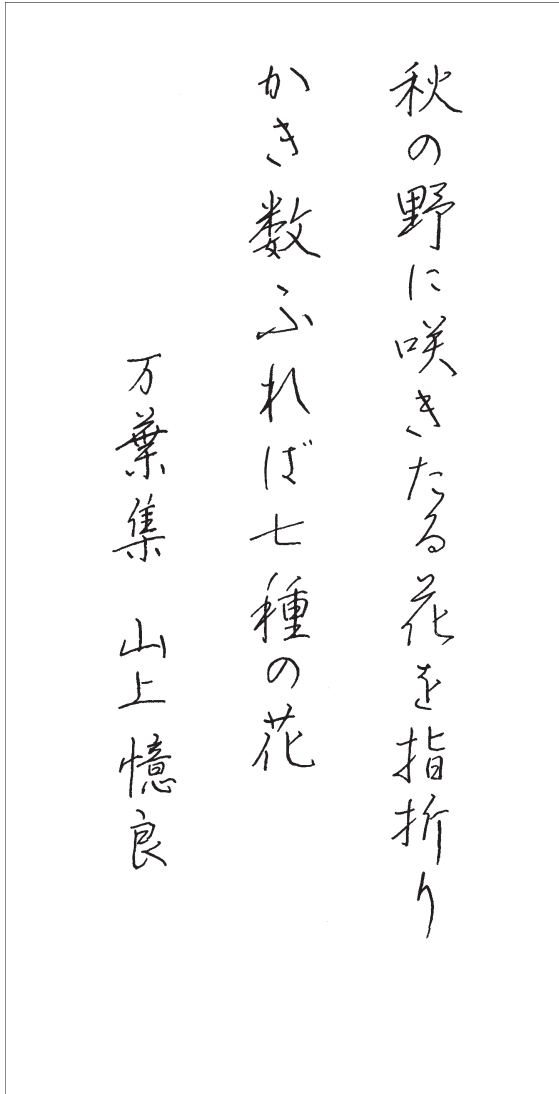 秋の野に咲きたる花を指折り
かき数ふれば七種の花
万葉集　山上憶良